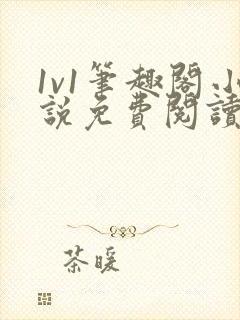 1v1筆趣閣小
說免費閱讀
茶暖